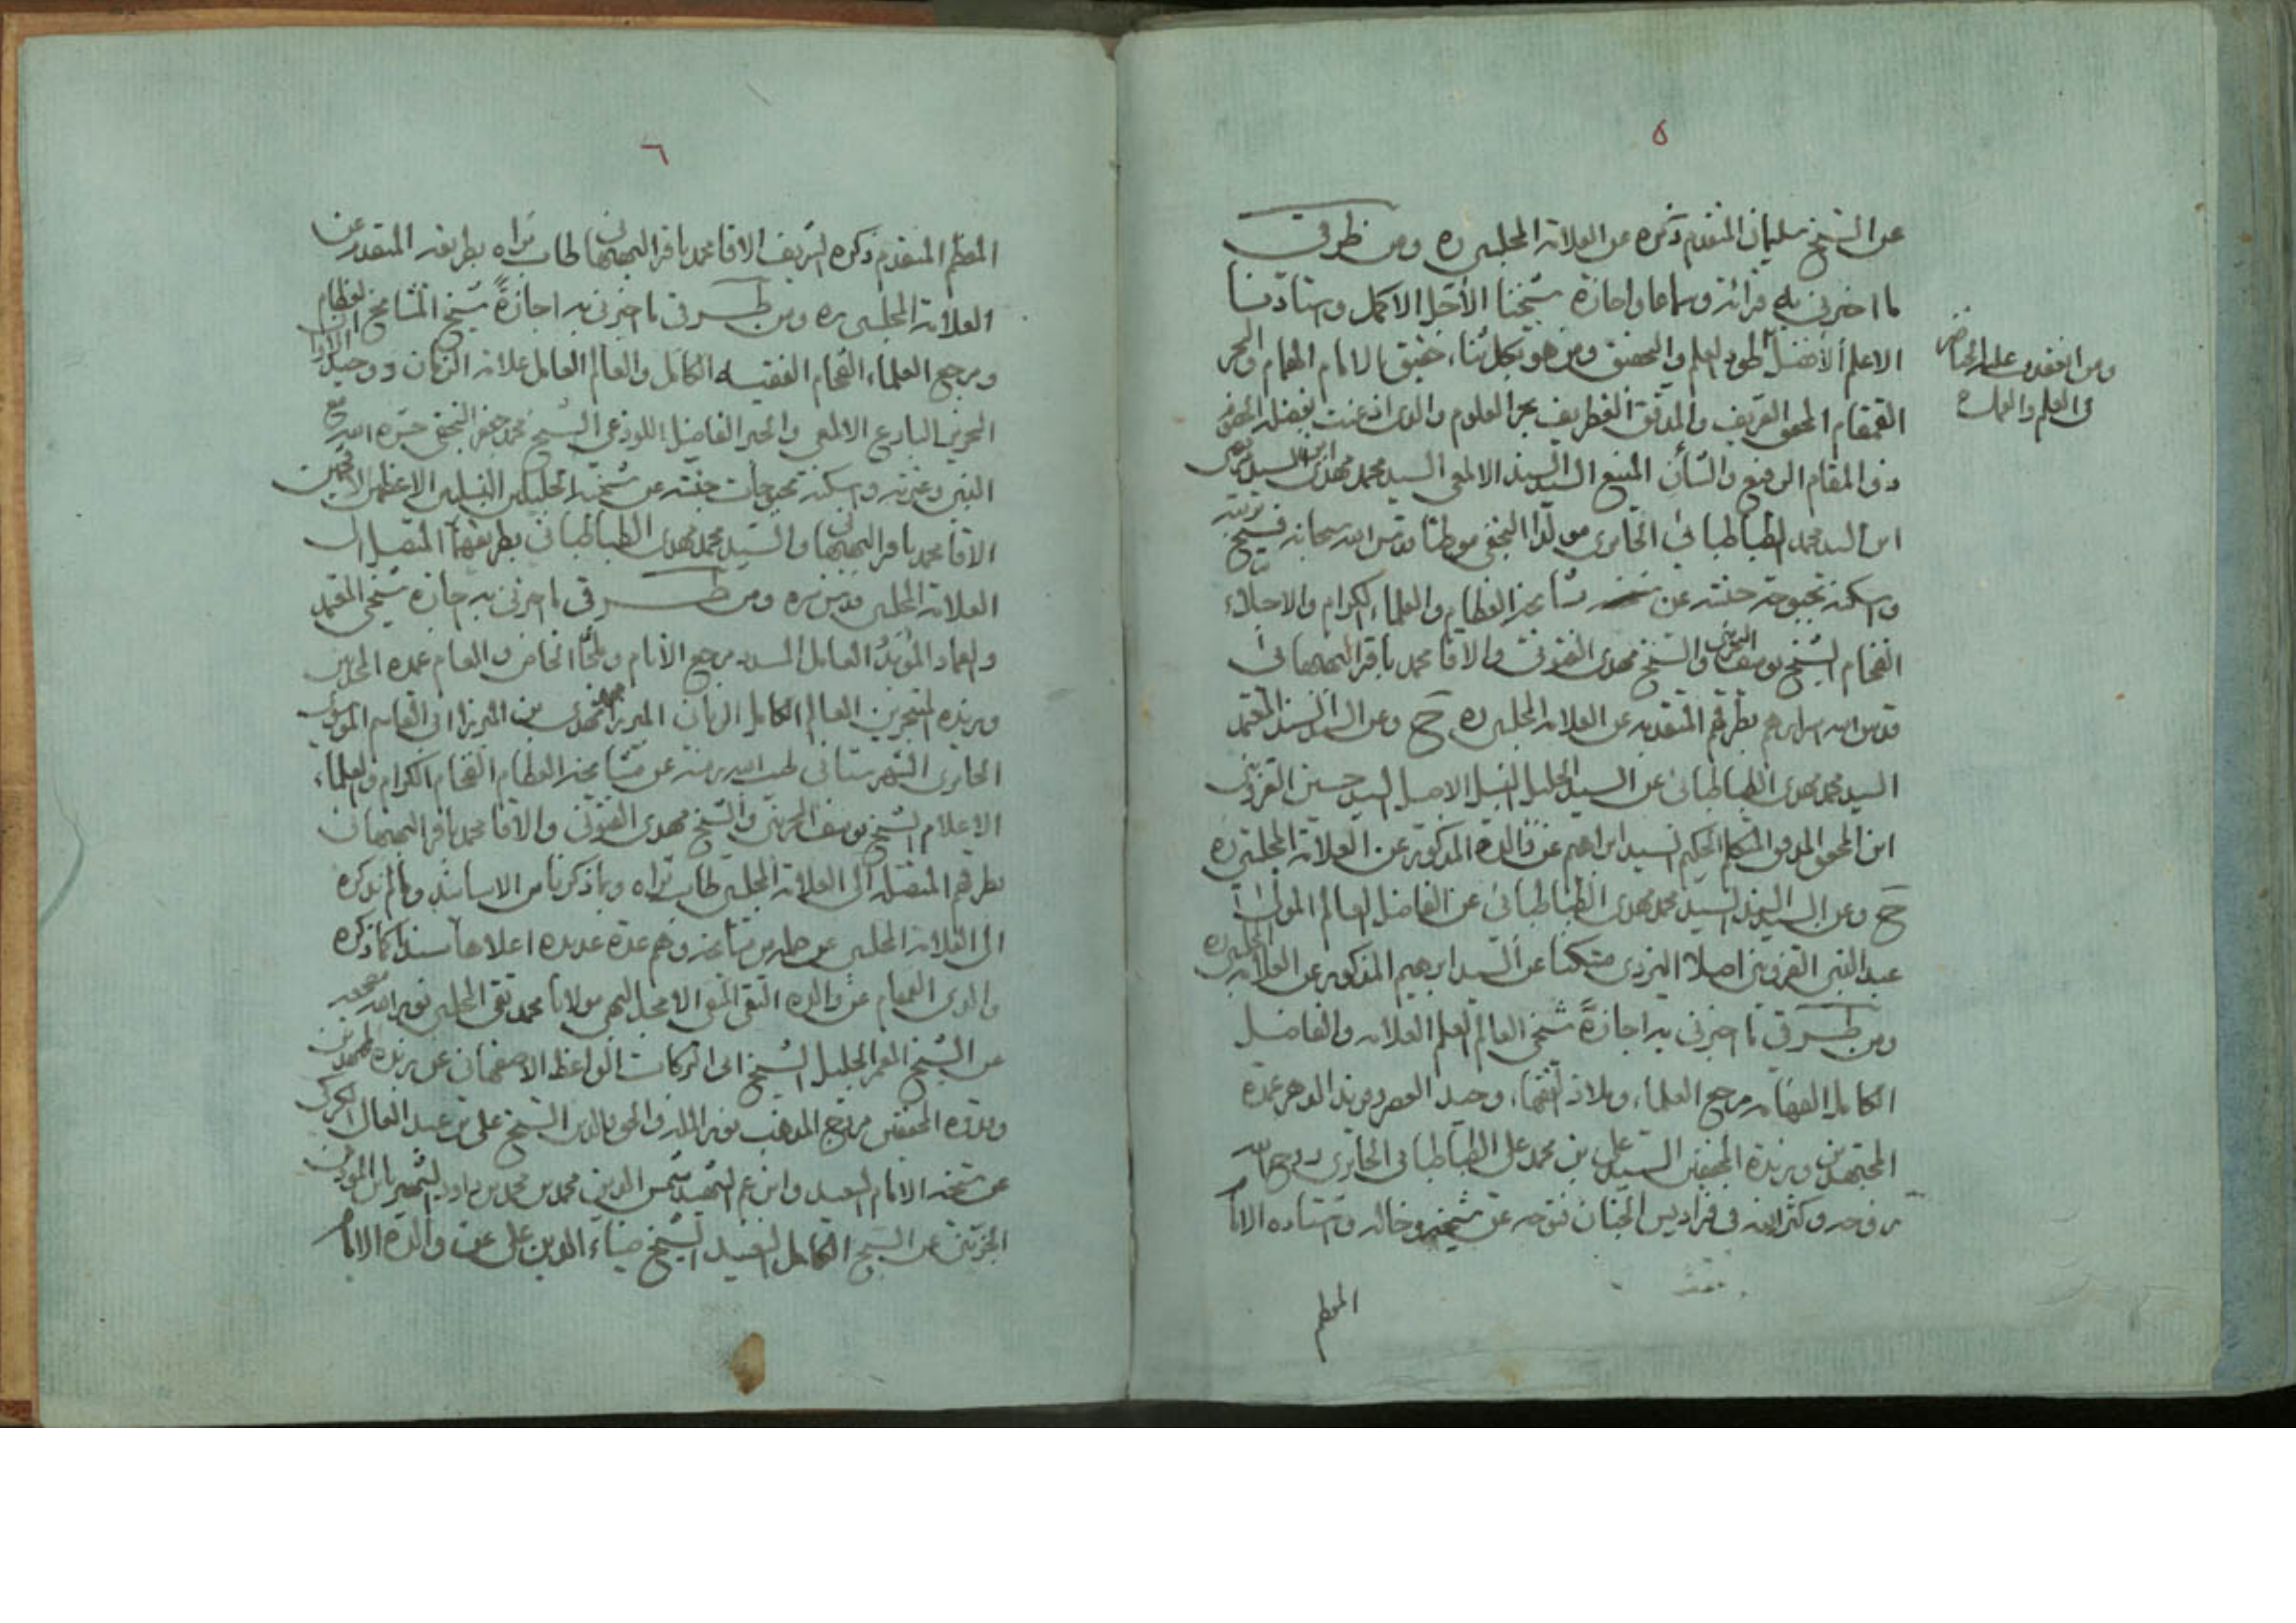 ٥
عن الشيخ سليمان المتقدم ذكره عن العلامة المجلسي ره ومن طرقي
ما اخبرني به قرائة وسماعا واجازة شيخنا الأجل الاكمل واستادنا
الاعلم الأفضل طود العلم والتحقيق ومن هو بكل ثناء حقيق الامام الهمام والبحر
القمقام المحقق العريف والمدقق الغطريف بحر العلوم والذى اذعنت بفضله
ومن انعقدت عليه الخناصر
فى العلم والعمل
ذى المقام الرفيع والشأن المنيع السيد السند الالمعى السيد محمد مهدى ابن السيد مرتضى
ابن السيد محمد الطباطبائى الحائرى مولدا النجفى موطنا قدس الله سبحانه فسيح تربته
واسكنه بحبوحة جنته عن مشايخه العظام والعلماء الكرام والاجلاء
الفخام الشيخ يوسف البحرينى والشيخ مهدى الفتونى والاقا محمد باقر البهبهانى
قدس الله اسرارهم بطرقهم المتقدمه عن العلامه المجلسى ره ح وعن السيد السند المعتمد
السيد محمد مهدى الطباطبائى عن السيد الجليل النبيل الاصيل السيد حسين القزوينى
ابن المحقق المدقق المتكلم الحكيم السيد ابراهيم عن والده المذكور عن العلامة المجلسى ره
ح وعن السيد السند السيد محمد مهدى الطباطبائى عن الفاضل العالم المولى
عبد النبى القزوينى اصلا اليزدى مسكنا عن السيد ابرهيم المذكور عن العلامه المجلسى ره
ومن طرقي ما اخبرنى به اجازةً شيخى العالم العلم العلامه والفاضل
الكامل الفهامه مرجع العلماء وملاذ الفقهاء وحيد العصر وفريد الدهر عمدة
المجتهدين وزبدة المحققين السيد على بن محمد على الطباطبائى الحائرى روح الله
روحه وكثر فى فراديس الجنان فتوحه عن شيخه وخاله واستاده الامام
المعظم
٦
المعظم المتقدم ذكره الشريف الاقا محمد باقر البهبهانى طاب ثراه بطريقه المتقدم عن
العلامة المجلسى ره ومن طرقى ما اخبرنى به اجازةً شيخ المشايخ العظام
ومرجع العلماء الفخام الفقيه الكامل والعالم العامل علامة الزمان ووحيد الاوان
النحرير البارع الالمعى والحبر الفاضل اللوذعى الشيخ محمد جعفر النجفى حشره الله مع
النبى وعترته واسكنه بحبوحات جنته عن شيخيه الجليلين النبيلين الاعظمين الافخمين
الاقا محمد باقر البهبهانى والسيد محمد مهدى الطباطبائى بطريقهما المتصل الى
العلامة المجلسى قدس سره ومن طرقى ما اخبرنى به اجازة شيخى المعتمد
والعماد المؤيد العامل المسدد مرجع الأنام وملجأ الخاص والعام عمدة المحدثين
وزبدة المتبحرين العالم الكامل الربانى الميرزا محمد مهدى بن الميرزا ابى القاسم الموسوى
الحائرى الشهرستانى طيب الله رمسه عن مشايخه العظام الفخام الكرام والعلماء
الاعلام الشيخ يوسف البحرينى والشيخ مهدى الفتونى والاقا محمد باقر البهبهانى
بطرقهم المتصله الى العلامة المجلسى طاب ثراه وبما ذكرنا من الاسانيد وما لم نذكره
الى العلامه المجلسى عن جملة من مشايخه وهم عدة عديده اعلاها سندا كما ذكره
والدى العلام عن والده التقى النقى الامجد البهى مولانا محمد تقى المجلسى نور الله مضجعه
عن الشيخ المعمر الجليل الشيخ ابى البركات الواعظ الاصفهانى عن زبدة المجتهدين
وقدوة المحققين مروج المذهب نور الملة والحق والدين الشيخ على بن عبد العالى الكركى
عن شيخه الامام السعيد وابن عم الشهيد شمس الدين محمد بن محمد بن داود الشهير بابن المؤذن
الجزينى عن الشيخ الكامل السعيد الشيخ ضياء الدين على عن والده الامام